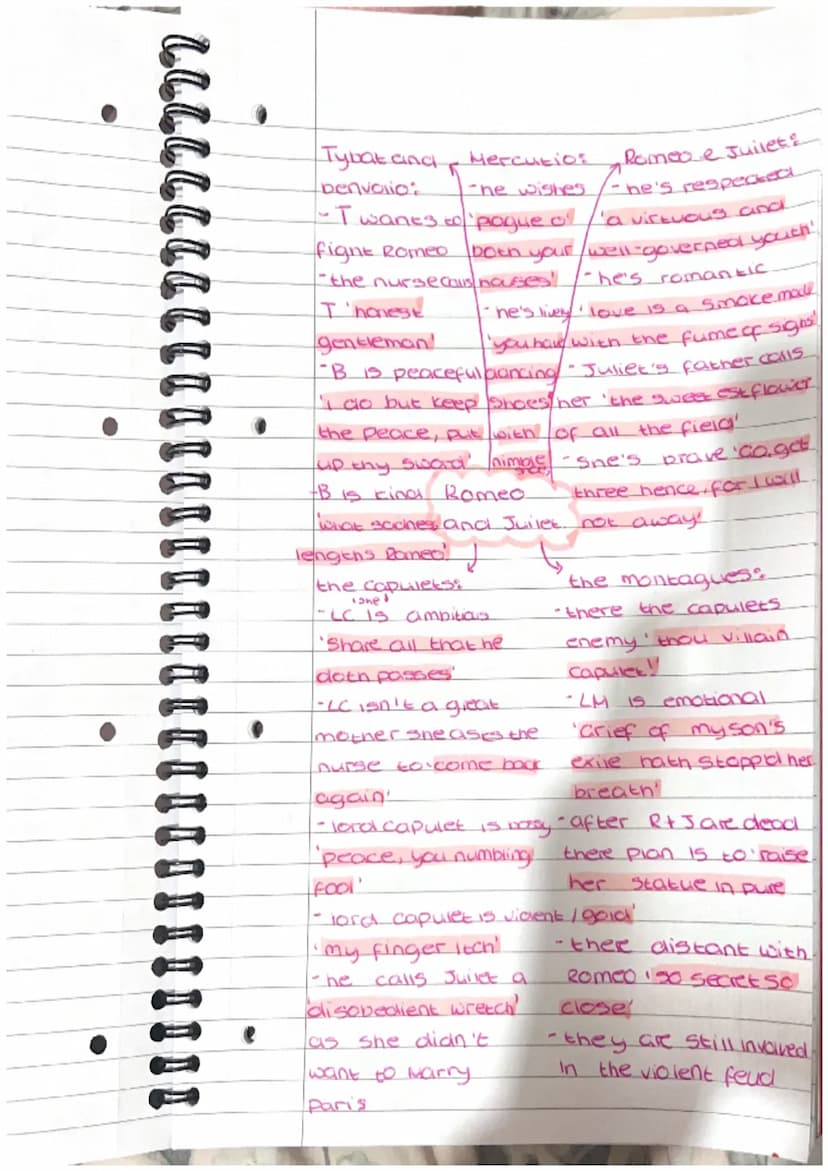 Tybat and
benvolio:
- T wants to
fight Romeo
- the nurse calls
T 'honest
gentleman'
- B is peaceful
'i do but keep
the peace, put
up thy sword'
- B is kind
lengths Romeo!'
Mercutio:
- he wishes
'pague o'
both your
houses'
- he's livey
'you have
dancing
shoes
with
nimble
Romeo & Juilet:
- he's respected
'a virtuous and
well-governed youth'
- he's romantic
'love is a smoke made
with the fume of sighs'
- Juliet's father calls
her 'the sweetest flower
of all the field'
- she's brave 'Go, get
three hence, for I will
not away!'
Romeo
and Juilet.
the capulets:
- LC 'she' is ambitious
'share all that he
doth posses'
- LC isn't a great
mother she asks the
nurse to 'come back
again'
- lord capulet is bossy
'peace, you numbling
fool'
- lord capulet is violent
'my finger itch'
- he calls Juilet a
'disobedient wretch'
as she didn't
want to marry
paris
the montagues:
- there the capulets
enemy 'thou villain
capulet!'
- LM is emotional
'Grief of my son's
exile hath stopp'd her
breath'
- after R+J are dead
there plan is to 'raise
her statue in pure
gold'
- there distant with
Romeo 'so secret so
close'
- they are still involved
in the violent feud